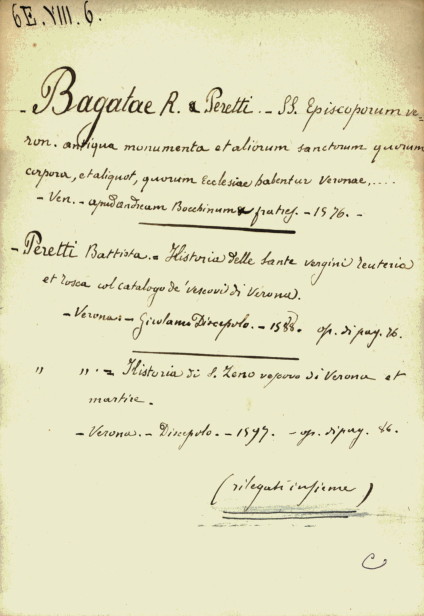 6E.VIII.6.
- Bagatae R. & Peretti. - SS. Episcoporum ve=
ron. antiqua monumenta et aliorum sanctorum quorum
corpora, et aliquot, quorum Ecclesiae habentur Veronae, ....
- Ven. - apud Andream Bocchinum & fratres. - 1576. -
- Peretti Battista. - Historia delle Sante vergini Teuteria
et Tosca col catalogo de' vescovi di Verona.
- Verona - Girolamo Discepolo. - 1588. op. di pag. 76.
" " . - Historia di S. Zeno vepovo di Verona et
martire.
- Verona. - Discepolo. - 1597. - op. di pag. 86.
(rilegati insieme)
C